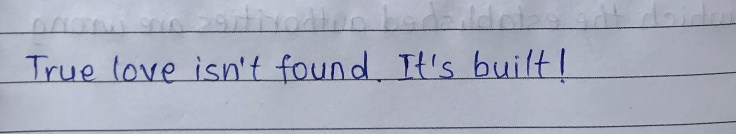 True love isn't found. It's built!